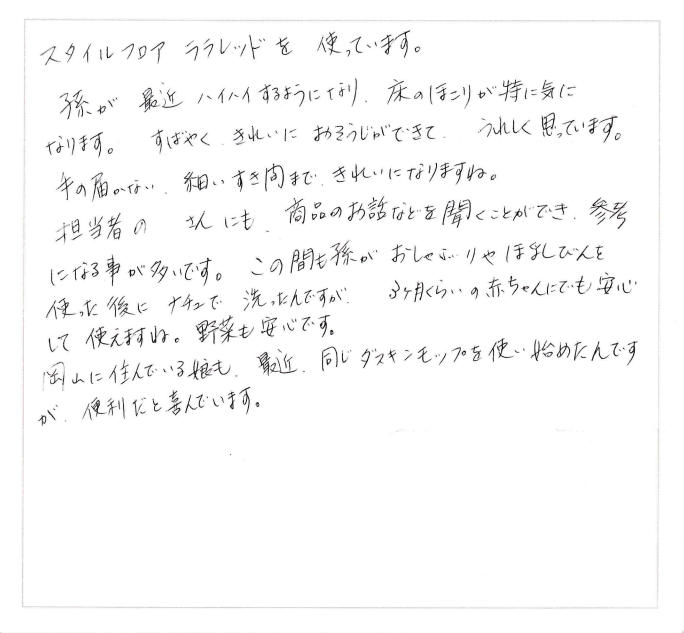 スタイルフロア ララレッドを 使っています。
孫が 最近 ハイハイするようになり、床のほこりが特に気に
なります。 すばやく、きれいに おそうじができて、 うれしく思っています。
手の届かない、細いすき間まで、きれいになりますね。
担当者の さんにも、商品のお話などを聞くことができ、参考
になる事が多いです。この間も孫が おしゃぶりやほ乳びんを
使った後に ナチュで 洗ったんですが、 3ヶ月くらいの赤ちゃんにでも安心
して使えますね。野菜も安心です。
岡山に住んでいる娘も、最近、同じダスキンモップを使い始めたんです
が、便利だと喜んでいます。